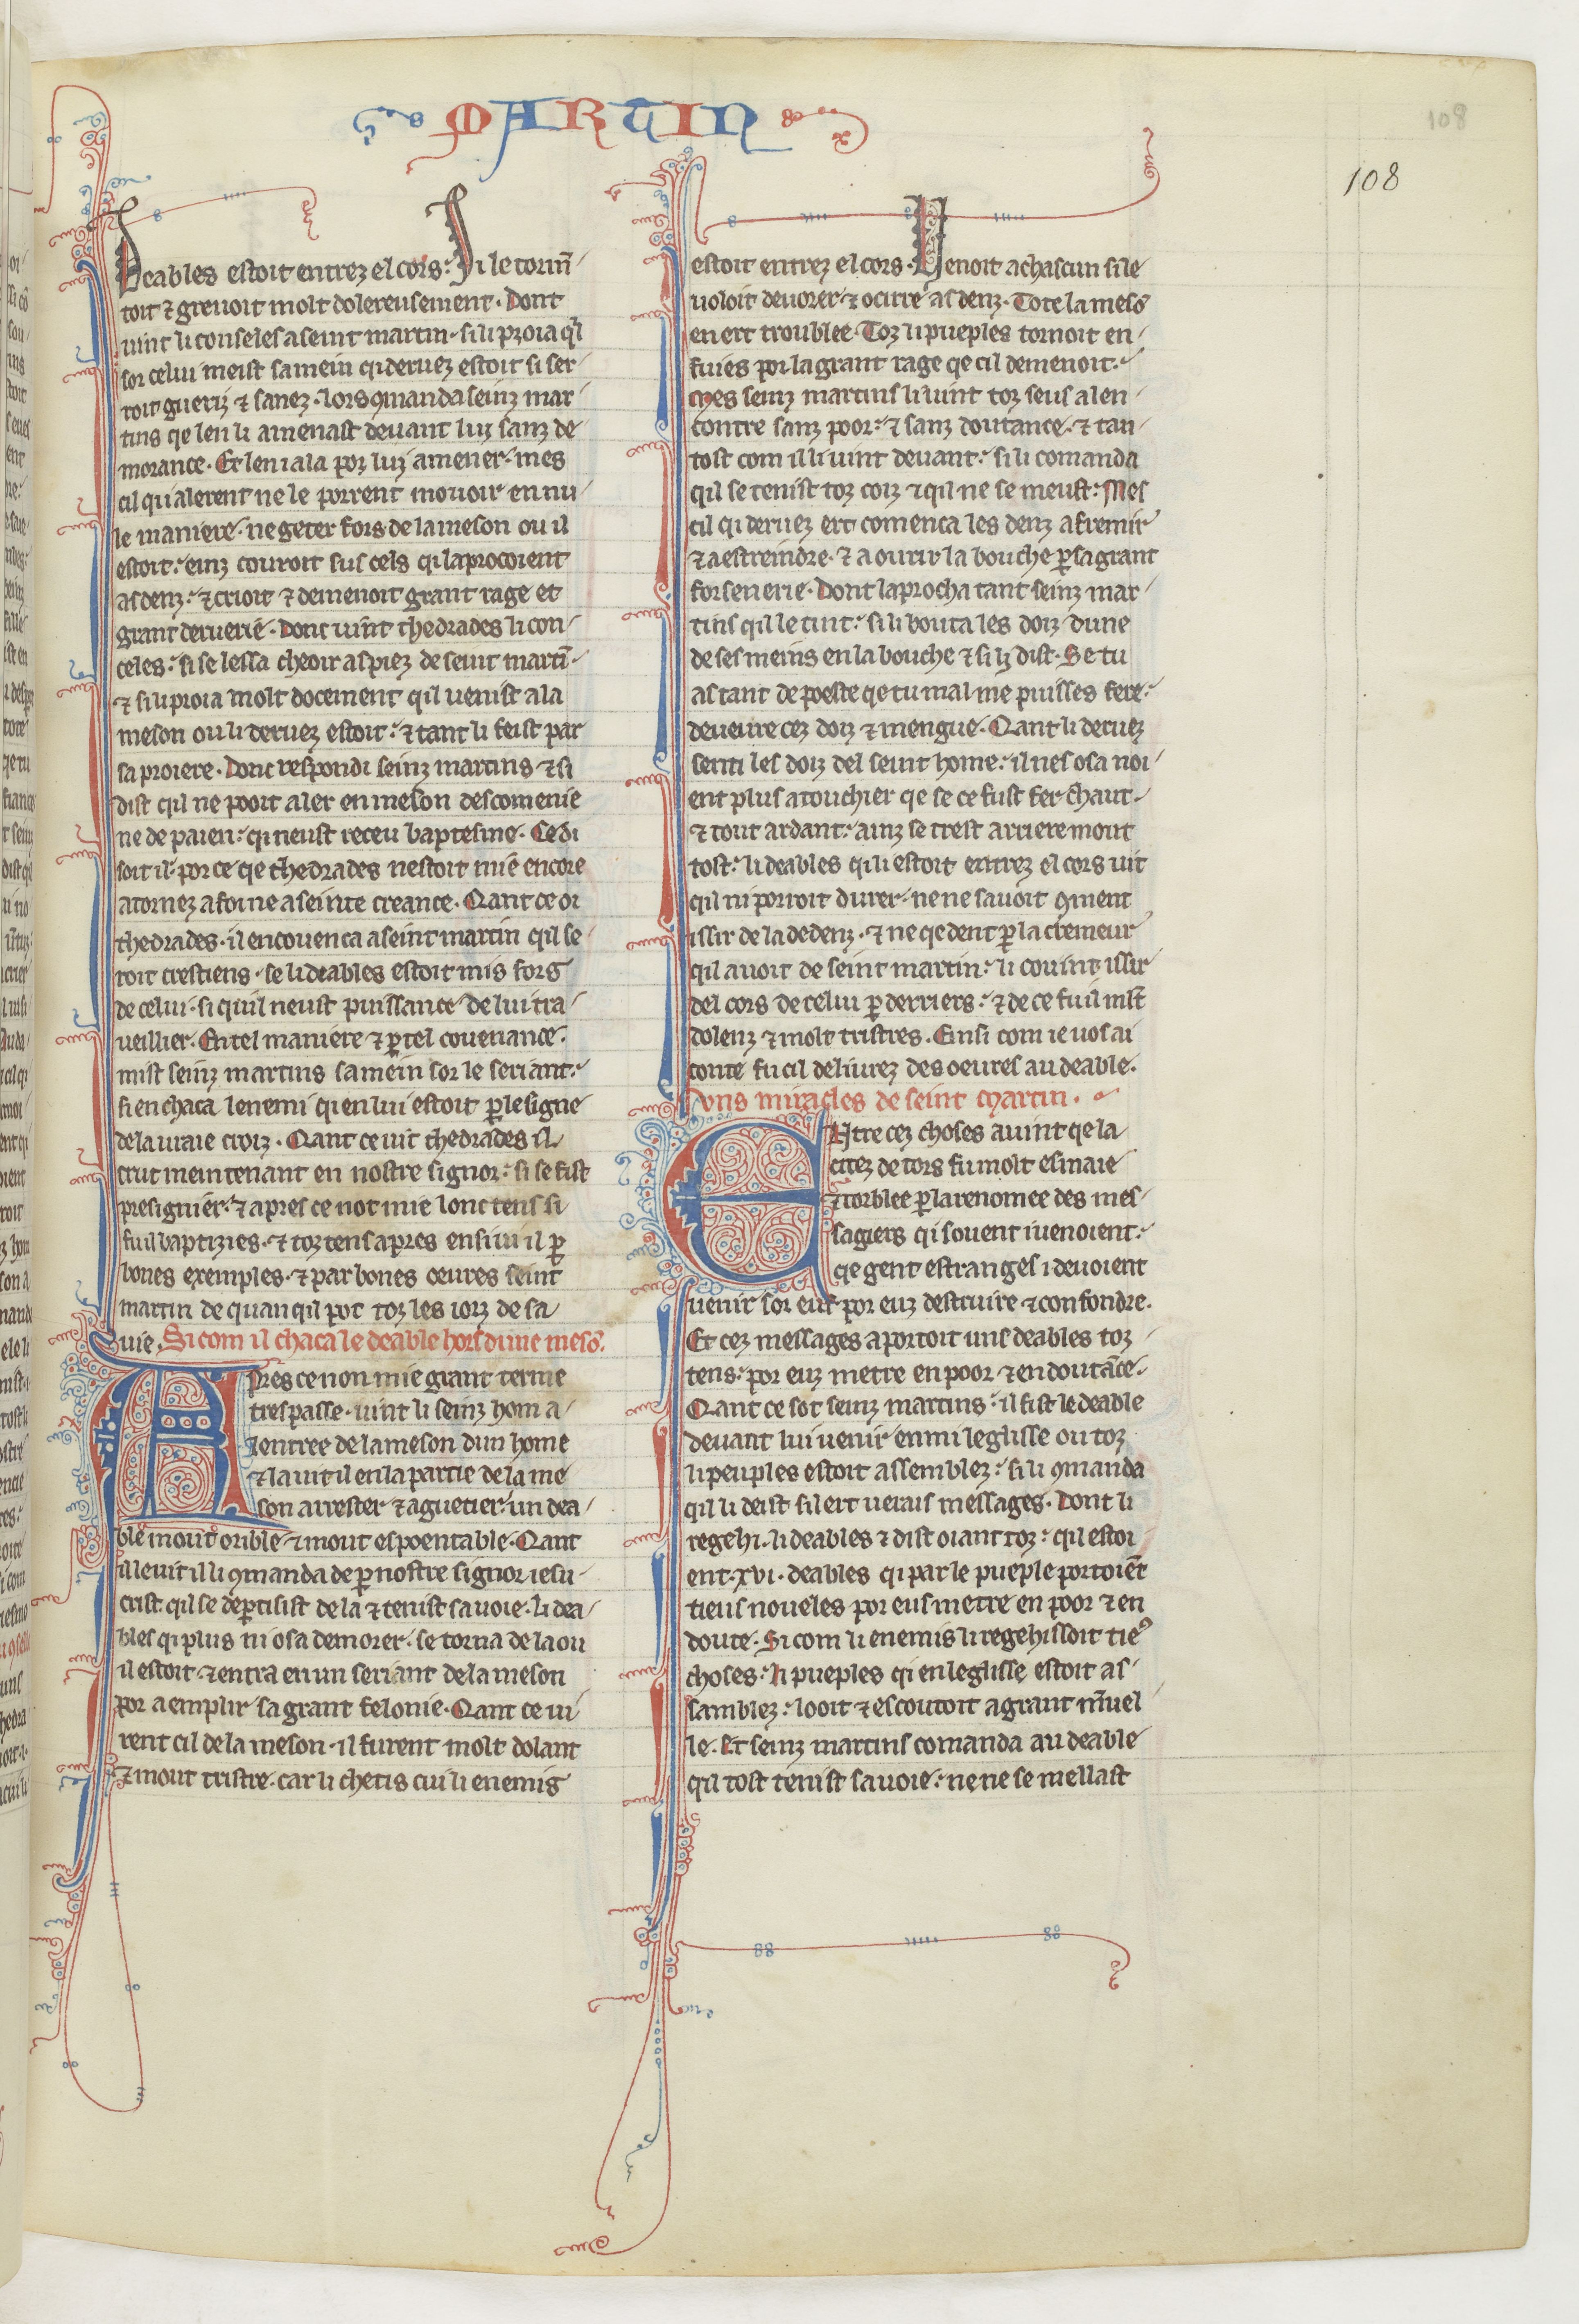 MARTIN
108
108
Deables estoit entrez el cors. Si le torm̃
toit ⁊ grevoit molt dolereusement. Dont
vint li conseles a seint martin. si li proia qͥl
sor celui meist sa mein qi dervez estoit si ser
roit gueriz ⁊ sanez. lors ꝯmanda seinz mar
tins qe len li amenast devant lui sanz de
morance. Et len i ala por lui amener. mes
cil qi alerent ne le porrent movoir en nu
le maniere. ne geter fors de la meson ou il
estoit. einz couroit sus cels qi laprocoient
as denz. ⁊ crioit ⁊ demenoit grant rage et
grant derverie. Donc vint thedrades li con
celes. si se lessa cheoir as piez de seint martĩ.
⁊ si li proia molt docement qil venist a la
meson ou li dervez estoit. ⁊ tant li feist par
sa proiere. Donc respondi seinz martins ⁊ si
dist qil ne pooit aler en meson descomenie
ne de paien. qi neust receu baptesme. Ce di
soit il. por ce qe thedrades nestoit mie encore
atornez a foi ne a seinte creance. Qant ce oi
thedrades. il encovenca a seint martin qil se
roit crestiens. se li deables estoit mis fors
de celui. si quil neust puissance de lui tra
veillier. En tel maniere ⁊ ꝑ tel covenance.
mist seinz martins sa mein sor le seriant.
si en chaca lenemi qi en lui estoit ꝑ le signe
de la vraie croiz. Qant ce vit thedrades il
crut meintenant en nostre signor. si se fist
presignier. ⁊ apres ce not mie lonc tens si
fu il baptizies. ⁊ toz tens apres ensivi il ꝑ
bones exemples. ⁊ par bones oeures seint
martin de quan qil pot toz les iorz de sa
vie. Si com il chaca le deable hors dune mesõ.
Apres ce non mie grant terme
trespasse. vint li seinz hom a
lentree de la meson dun home
⁊ la vit il en la partie de la me
son arrester ⁊ aguetier un dea
ble mout orible ⁊ mout espoentable. Qant
il le vit il li ꝯmanda de ꝑ nostre signor iesu
crist. qil se deꝑtisist de la ⁊ tenist sa voie. li dea
bles qi plus ni osa demorer. se torna de la ou
il estoit ⁊ entra en un seriant de la meson
por aemplir sa grant felonie. Qant ce vi
rent cil de la meson. il furent molt dolant
⁊ mout tristre. car li chetis cui li enemis
estoit entrez el cors. Venoit a chascun si le
voloit devorer ⁊ ocirre as denz. Tote la mesõ
en ert troublee. Toz li pueples tornoit en
fuies por la grant rage qe cil demenoit.
Mes seinz martins li vint toz seus a len
contre sanz poor. ⁊ sanz doutance. ⁊ tan
tost com il li vint devant. si li comanda
qil se tenist toz coiz ⁊ qil ne se meust. Mes
cil qi dervez ert comenca les denz a fremir
⁊ a estreindre. ⁊ a ouvrir la bouche ꝑ sa grant
forsenerie. Dont laprocha tant seinz mar
tins qil le tint. si li bouta les doiz dune
de ses meins en la bouche ⁊ si li dist. Se tu
as tant de poeste qe tu mal me puisses fere.
deveure cez doiz ⁊ mengue. Qant li dervez
senti les doiz del seint home. il nes osa noi
ent plus atouchier qe se ce fust fer chaut.
⁊ tout ardant. ainz se trest arriere mout
tost. li deables qi li estoit entrez el cors vit
qil ni porroit durer. ne ne savoit ꝯment
issir de la dedenz. ⁊ ne qedent ꝑ la cremeur
qil avoit de seint martin. li covint issir
del cors de celui ꝑ derriers. ⁊ de ce fu il mlt̃
dolenz ⁊ molt tristres. Einsi com ie vos ai
conte fu cil delivrez des oeures au deable.
Uns miracles de seint martin.
Entre cez choses avint qe la
citez de tors fu molt esmaie
⁊ torblee ꝑ la renomee des mes
sagiers qi sovent i venoient.
qe gent estranges i devoient
venir sor eus por euz destruire ⁊ confondre.
Et cez messages aportoit uns deables toz
tens. por euz metre en poor ⁊ en doutãce.
Qant ce sot seinz martins. il fist le deable
devant lui venir enmi leglisse ou toz
li peuples estoit assemblez. si li ꝯmanda
qil li deist sil ert verais messages. Dont li
regehi. li deables ⁊ dist oiant toz. qil estoi
ent .xvi. deables qi par le pueple portoiẽt
tieus noveles por eus metre en poor ⁊ en
doute. Si com li enemis li regehissoit tieˢ
choses. li pueples qi en leglisse estoit as
samblez. looit ⁊ escoutoit a grant m̃vel
le. Et seinz martins comanda au deable
qil tost tenist sa voie. ne ne se mellast